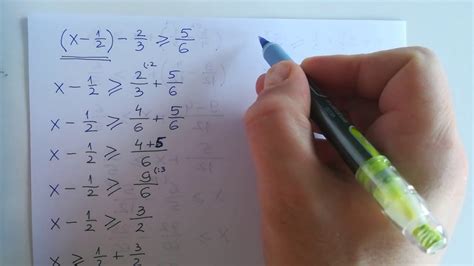 (x - 1/2) - 2/3 ⩾ 5/6
x - 1/2 ⩾ 2/3 (·2 + 5/6
x - 1/2 ⩾ 4/6 + 5/6
x - 1/2 ⩾ 4+5/6
x - 1/2 ⩾ 9/6 (:3
x - 1/2 ⩾ 3/2
x ⩾ 1/2 + 3/2